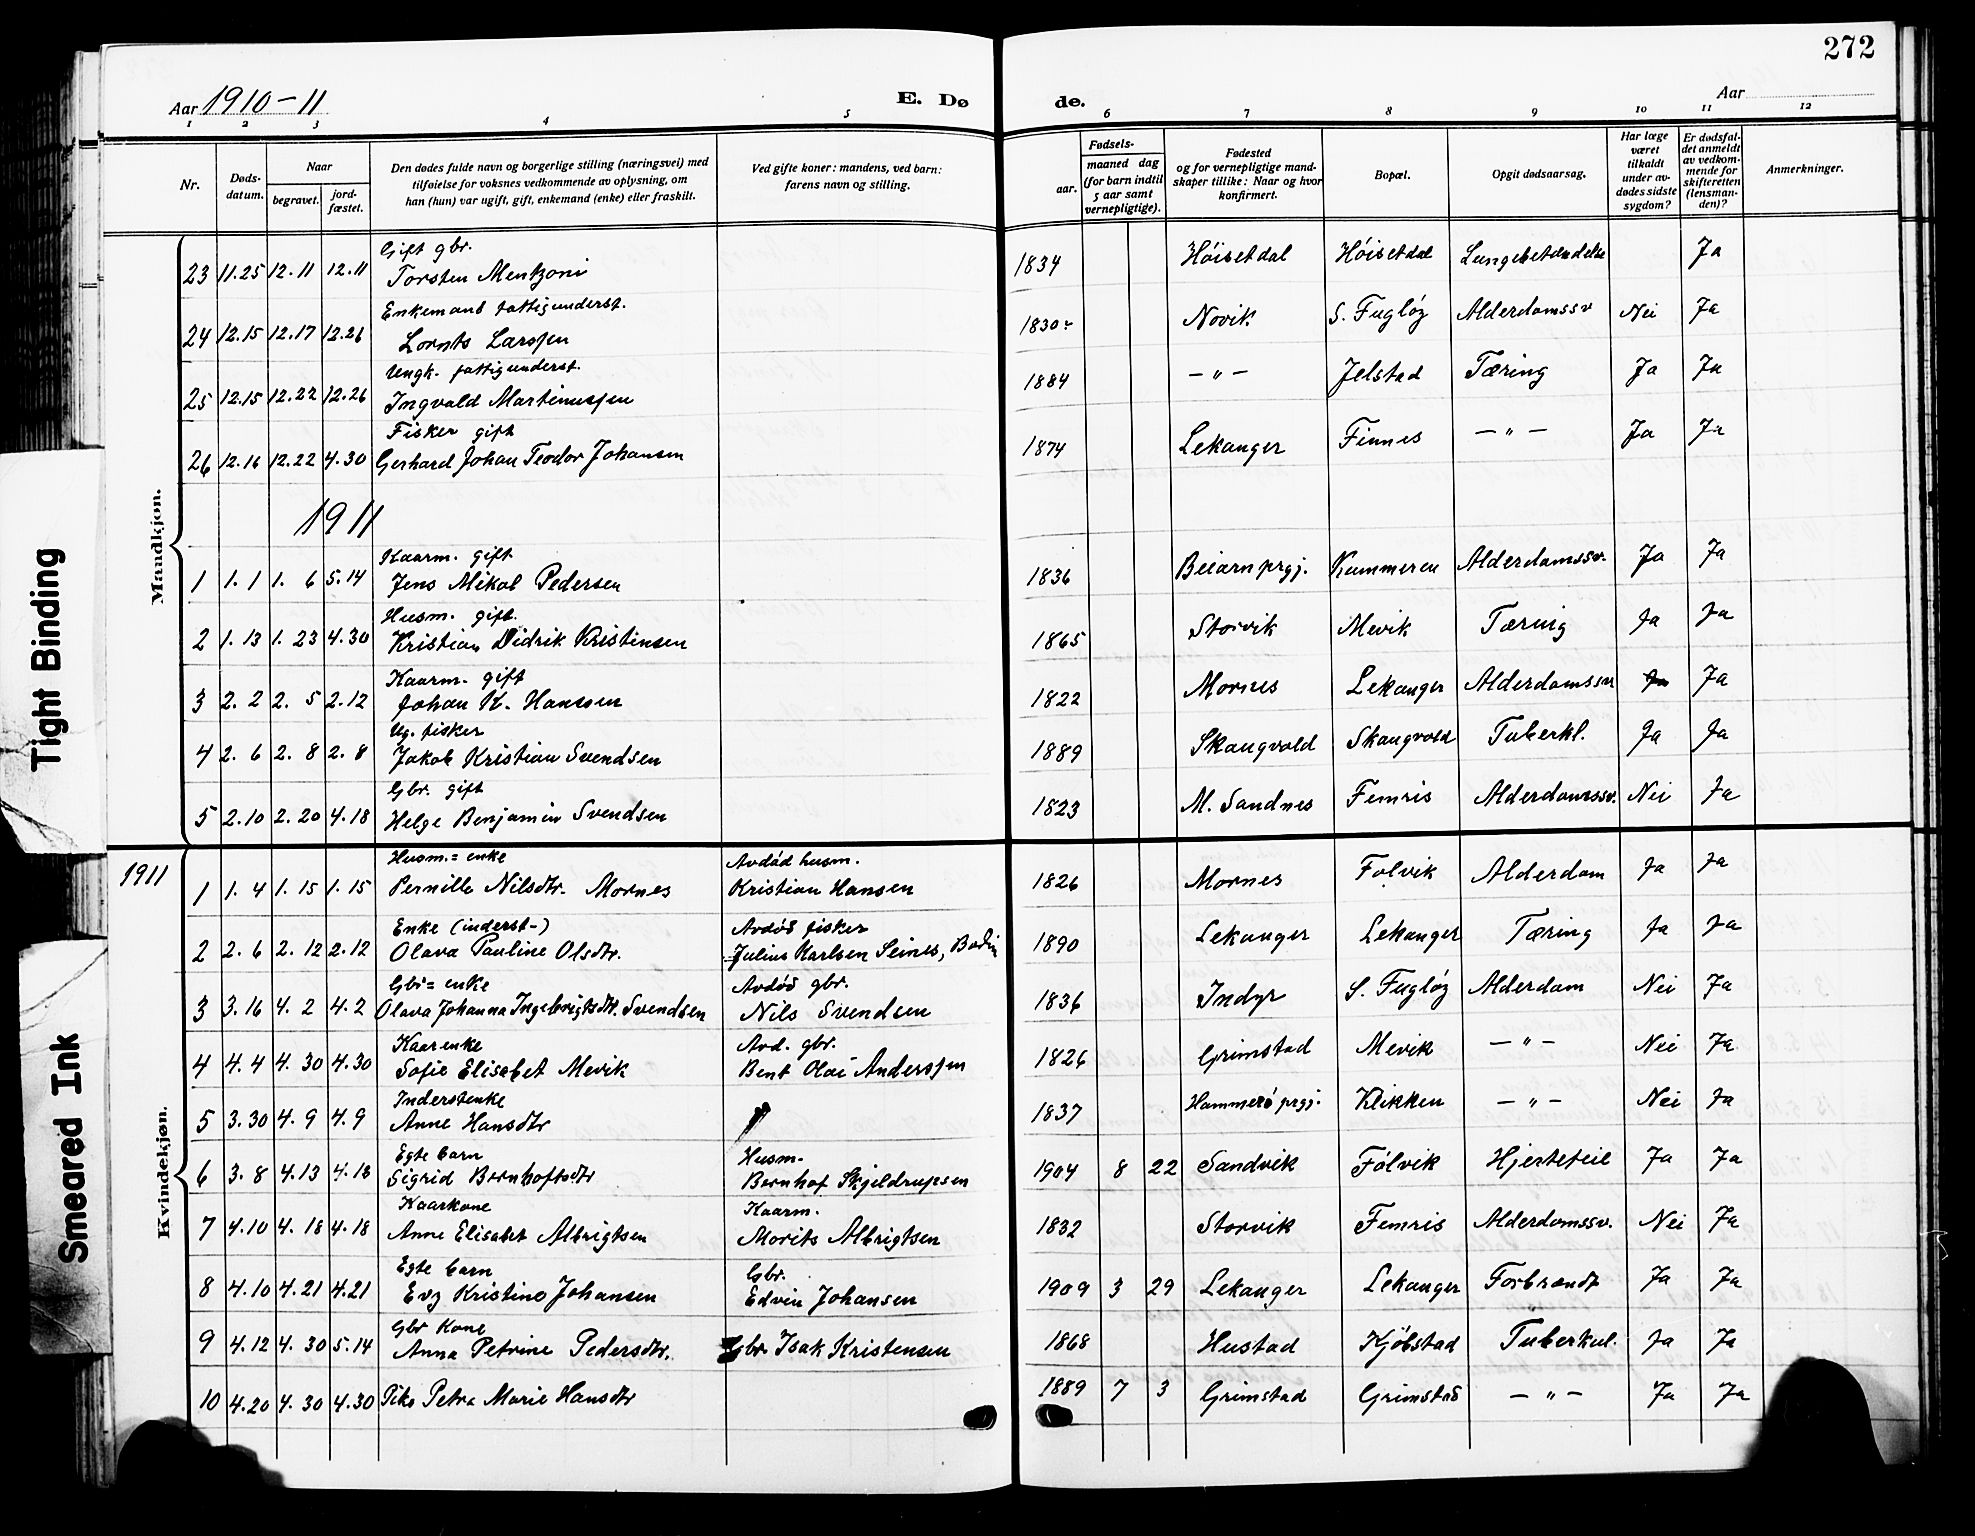 272
Aar 1910-11
E. Dø
de.
Aar
1 2 3 4 5 6 7 8 9 10 11 12
Nr.
Døds-
datum.
Naar
begravet.
jord-
fæstet.
Den dødes fulde navn og borgerlige stilling (næringsvei) med
tilføielse for voksnes vedkommende av oplysning, om
han (hun) var ugift, gift, enkemand (enke) eller fraskilt.
Ved gifte koner: mandens, ved barn:
farens navn og stilling.
Fødsels-
aar.
maaned dag
(for barn indtil
5 aar samt
vernepligtige).
Fødested
og for vernepligtige mand-
skaper tillike: Naar og hvor
konfirmert.
Bopæl.
Opgit dødsaarsag.
Har læge
været
tilkaldt
under av-
dødes sidste
sygdom?
Er dødsfal-
det anmeldt
av vedkom-
mende for
skifteretten
(lensman-
den)?
Anmerkninger.
Mandkjøn.
Gift gbr.
23 11.25 12.11 12.11 Torsten Mentzoni 1834 Høisetdal Høisetdal Lungebetændelse Ja
Enkemand fattigunderst.
24 12.15 12.17 12.26 Lornts Larssen 1830 Novik S. Fugløy Alderdomssv Nei Ja
Ungk. fattigunderst.
25 12.15 12.22 12.26 Ingvald Martinussen 1884 — " — Jelstad Tæring Ja Ja
Fisker gift
26 12.16 12.22 4.30 Gerhard Johan Teodor Johansen 1874 Lekanger Finnes — " — Ja Ja
1911
Kaarm. gift
1 1.1 1.6 5.14 Jens Mikal Pedersen 1836 Beiarn prgj. Kummeren Alderdomssv. Ja Ja
Husm. gift.
2 1.13 1.23 4.30 Kristian Didrik Kristensen 1865 Storvik Mevik Tæring Ja Ja
Kaarm. gift
3 2.2 2.5 2.12 Johan K. Hanssen 1822 Mornes Lekanger Alderdomssv Ja Ja
Ug. fisker
4 2.6 2.8 2.8 Jakob Kristian Svendsen 1889 Skaugvold Skaugvold Tuberkl. Ja Ja
Gbr. gift
5 2.10 2.20 4.18 Helge Benjamin Svendsen 1823 M. Sandnes Femris Alderdomssv. Nei Ja
1911
Kvindekjøn.
Husm.= enke Avdød husm.
1 1.4 1.15 1.15 Pernille Nilsdtr. Mornes Kristian Hansen 1826 Mornes Følvik Alderdom Ja Ja
Enke (inderst-) Avdød fisker
2 2.6 2.12 2.12 Olava Pauline Olsdtr. Julius Karlsen Seines, Bodin 1890 Lekanger Lekanger Tæring Ja Ja
Gbr= enke Avdød gbr.
3 3.16 4.2 4.2 Olava Johanna Ingebrigtsdtr. Svendsen Nils Svendsen 1836 Indyr S. Fugløy Alderdom Nei Ja
Kaarenke Avd. gbr.
4 4.4 4.30 4.30 Sofie Elisabet Mevik Bent Olai Anderssen 1826 Grimstad Mevik — " — Nei Ja
Inderstenke
5 3.30 4.9 4.9 Anne Hansdtr 1837 Hammerö prgj. Klikken — " — Nei Ja
Egte barn Husm.
6 3.8 4.13 4.18 Sigrid Bernhoftsdtr Bernhof Skjeldrupsen 1904 8 22 Sandvik Følvik Hjertefeil Ja Ja
Kaarkone Kaarm.
7 4.10 4.18 4.18 Anne Elisabet Albrigtsen Morits Albrigtsen 1832 Storvik Femris Alderdomssv. Nei Ja
Egte barn Gbr.
8 4.10 4.21 4.21 Evy Kristine Johansen Edvin Johansen 1909 3 29 Lekanger Lekanger Forbrændt Ja Ja
Gbr Kone
9 4.12 4.30 5.14 Anna Petrine Pedersdtr. Gbr Isak Kristensen 1868 Hustad Kjøbstad Tuberkul. Ja Ja
10 4.20 4.30 4.30 Pike Petra Marie Hansdtr 1889 7 3 Grimstad Grimstad — " — Ja Ja
Tight Binding
Smeared Ink